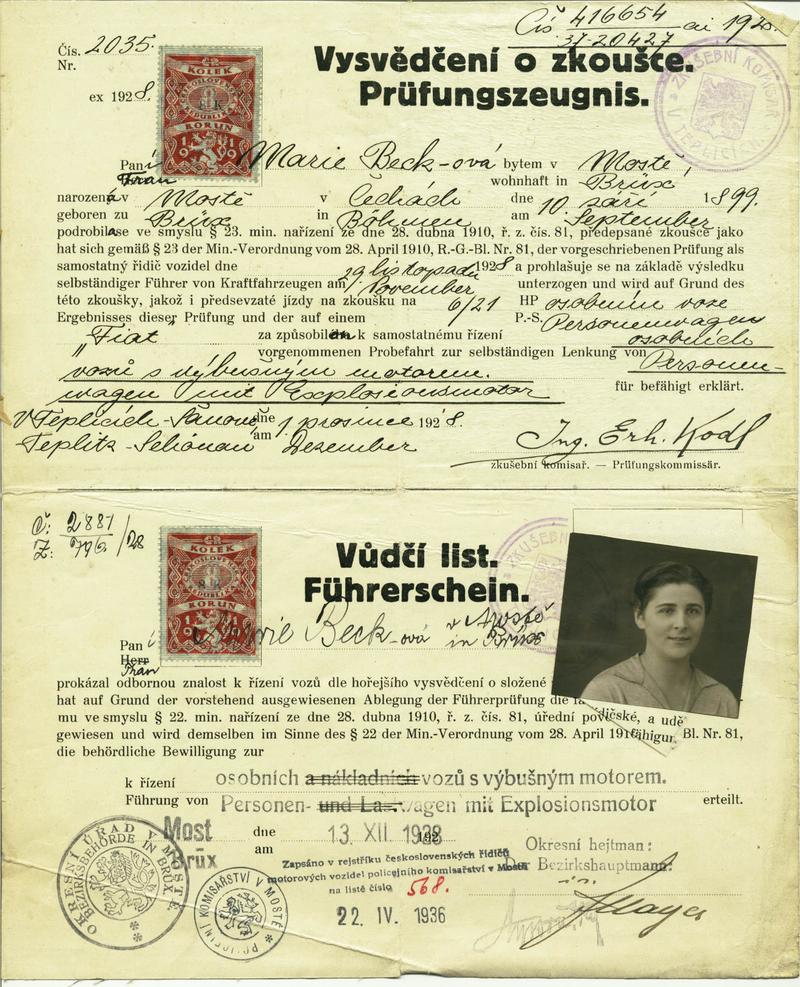 Čís 416654 ai 19
37-20427
Čís. 2035.
Nr.
ex 1928.
KOLEK
KORUN
1919
Vysvědčení o zkoušce.
Prüfungszeugnis.
Paní Marie Beck-ová bytem v Mostě,
Frau wohnhaft in Brüx
narozená v Mostě v Čechách dne 10. září 1899.
geboren zu Brüx in Böhmen am September
podrobila se ve smyslu § 23. min. nařízení ze dne 28. dubna 1910, ř. z. čís. 81, předepsané zkoušce jako
hat sich gemäß § 23 der Min.-Verordnung vom 28. April 1910, R.-G.-Bl. Nr. 81, der vorgeschriebenen Prüfung als
samostatný řidič vozidel dne 29 listopadu 1928 a prohlašuje se na základě výsledku
selbständiger Führer von Kraftfahrzeugen am November unterzogen und wird auf Grund des
této zkoušky, jakož i předsevzaté jízdy na zkoušku na 6/21 HP osobním voze
Ergebnisses dieser Prüfung und der auf einem P.-S. Personenwagen
„Fiat" za způsobilou k samostatnému řízení osobních
vorgenommenen Probefahrt zur selbständigen Lenkung von Personen-
vozů s výbušným motorem.
wagen mit Explosionsmotor für befähigt erklärt.
V Teplicích-Šanově dne 1 prosince 1928.
Teplitz-Schönau am Dezember
Ing. Erh. Kodl
zkušební komisař. — Prüfungskommissär.
Č: 2881
Z: 796/28
KOLEK
KORUN
1919
Vůdčí list.
Führerschein.
Paní Marie Beck-ová v Mostě
Herr in Brüx
Frau
prokázal odbornou znalost k řízení vozů dle hořejšího vysvědčení o složené
hat auf Grund der vorstehend ausgewiesenen Ablegung der Führerprüfung die
mu ve smyslu § 22. min. nařízení ze dne 28. dubna 1910, ř. z. čís. 81, úřední
gewiesen und wird demselben im Sinne des § 22 der Min.-Verordnung vom 28. April Bl. Nr. 81,
die behördliche Bewilligung zur
k řízení osobních a nákladních vozů s výbušným motorem.
Führung von Personen- und Las wagen mit Explosionsmotor erteilt.
Most dne 13. XII. 1928
Brüx am
Okresní hejtman:
Der Bezirkshauptmann:
Zapsáno v rejstříku československých řidičů
motorových vozidel policejního komisařství v Mostě
na listě číslo 568.
22. IV. 1936
OKRESNÍ ÚŘAD V MOSTĚ
BEZIRKSBEHÖRDE IN BRÜX
POLICEJNÍ KOMISAŘSTVÍ V MOSTĚ